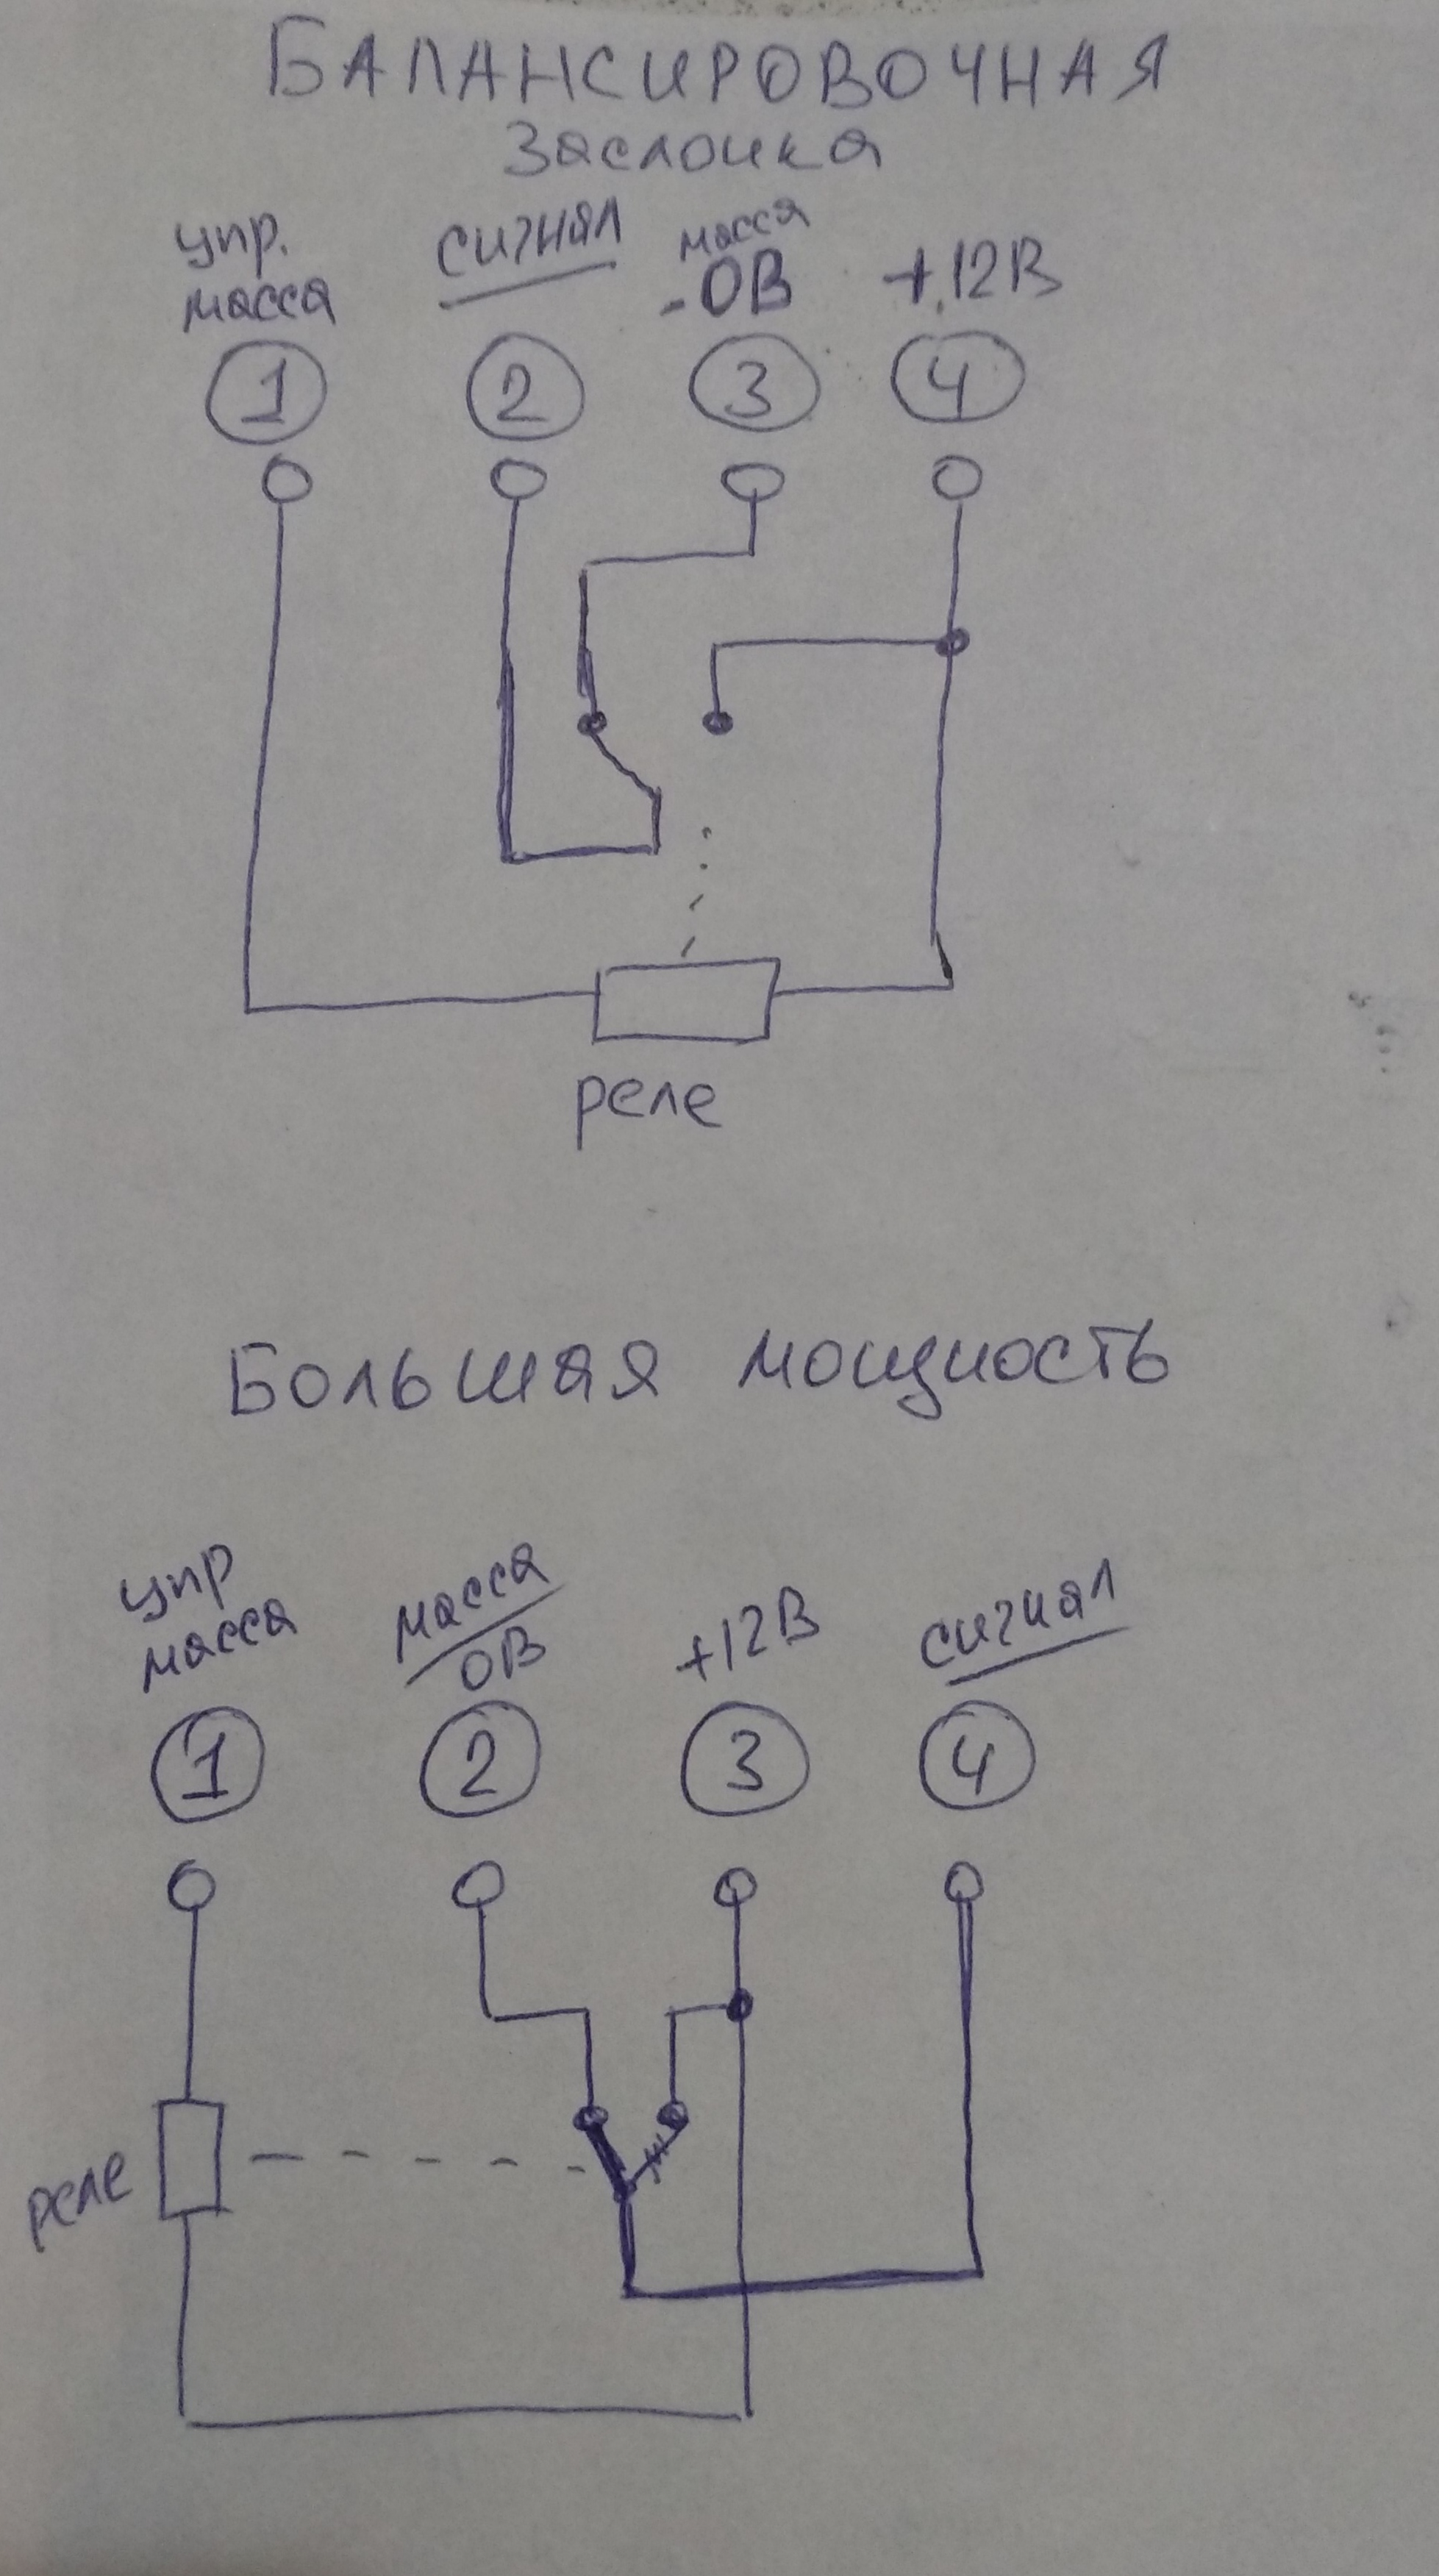 БАЛАНСИРОВОЧНАЯ
Заслонка
упр. масса
сигнал
масса -0В
+12В
1 2 3 4
реле
Большая мощность
упр масса
масса 0В
+12В
сигнал
1 2 3 4
реле